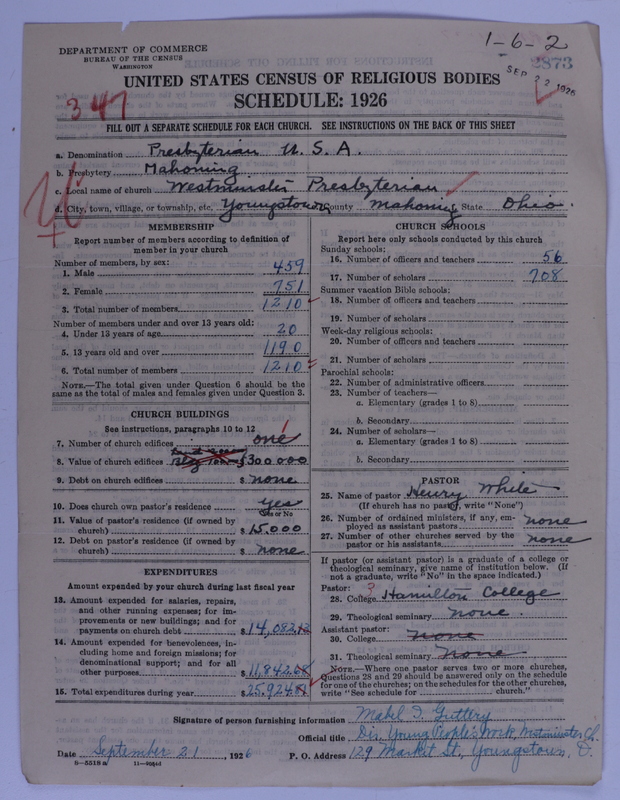 DEPARTMENT OF COMMERCE
BUREAU OF THE CENSUS
WASHINGTON
1-6-2
2873
SEP 22 1926
UNITED STATES CENSUS OF RELIGIOUS BODIES
SCHEDULE: 1926
347
FILL OUT A SEPARATE SCHEDULE FOR EACH CHURCH. SEE INSTRUCTIONS ON THE BACK OF THIS SHEET
a. Denomination Presbyterian U.S.A.
b. Presbytery Mahoning
c. Local name of church Westminster Presbyterian
d. City, town, village, or township, etc. Youngstown County Mahoning State Ohio.
MEMBERSHIP
Report number of members according to definition of member in your church
Number of members, by sex:
1. Male 459
2. Female 751
3. Total number of members 1210
Number of members under and over 13 years old:
4. Under 13 years of age 20
5. 13 years old and over 1190
6. Total number of members 1210
NOTE.—The total given under Question 6 should be the same as the total of males and females given under Question 3.
CHURCH BUILDINGS
See instructions, paragraphs 10 to 12
7. Number of church edifices one
8. Value of church edifices $300000
9. Debt on church edifices $ none
10. Does church own pastor's residence Yes
Yes or No
11. Value of pastor's residence (if owned by church) $15,000
12. Debt on pastor's residence (if owned by church) $ none
EXPENDITURES
Amount expended by your church during last fiscal year
13. Amount expended for salaries, repairs, and other running expenses; for improvements or new buildings; and for payments on church debt $14,082.
14. Amount expended for benevolences, including home and foreign missions; for denominational support; and for all other purposes $11,842.
15. Total expenditures during year $25,924.
CHURCH SCHOOLS
Report here only schools conducted by this church
Sunday schools:
16. Number of officers and teachers 56
17. Number of scholars 708
Summer vacation Bible schools:
18. Number of officers and teachers
19. Number of scholars
Week-day religious schools:
20. Number of officers and teachers
21. Number of scholars
Parochial schools:
22. Number of administrative officers
23. Number of teachers—
a. Elementary (grades 1 to 8)
b. Secondary
24. Number of scholars—
a. Elementary (grades 1 to 8)
b. Secondary
PASTOR
25. Name of pastor Henry White
(If church has no pastor, write "None")
26. Number of ordained ministers, if any, employed as assistant pastors none
27. Number of other churches served by the pastor or his assistants none
If pastor (or assistant pastor) is a graduate of a college or theological seminary, give name of institution below. (If not a graduate, write "No" in the space indicated.)
Pastor: ?
28. College Hamilton College
29. Theological seminary none.
Assistant pastor:
30. College none
31. Theological seminary None
NOTE.—Where one pastor serves two or more churches, Questions 28 and 29 should be answered only on the schedule for one of the churches; on the schedules for the other churches, write "See schedule for church."
Signature of person furnishing information Mabel I. Guttery
Official title Dir. Young People's Work, Westminster Ch.
Date September 21, 1926 P. O. Address 129 Market St., Youngstown, O.
8—5518a 11—9064d